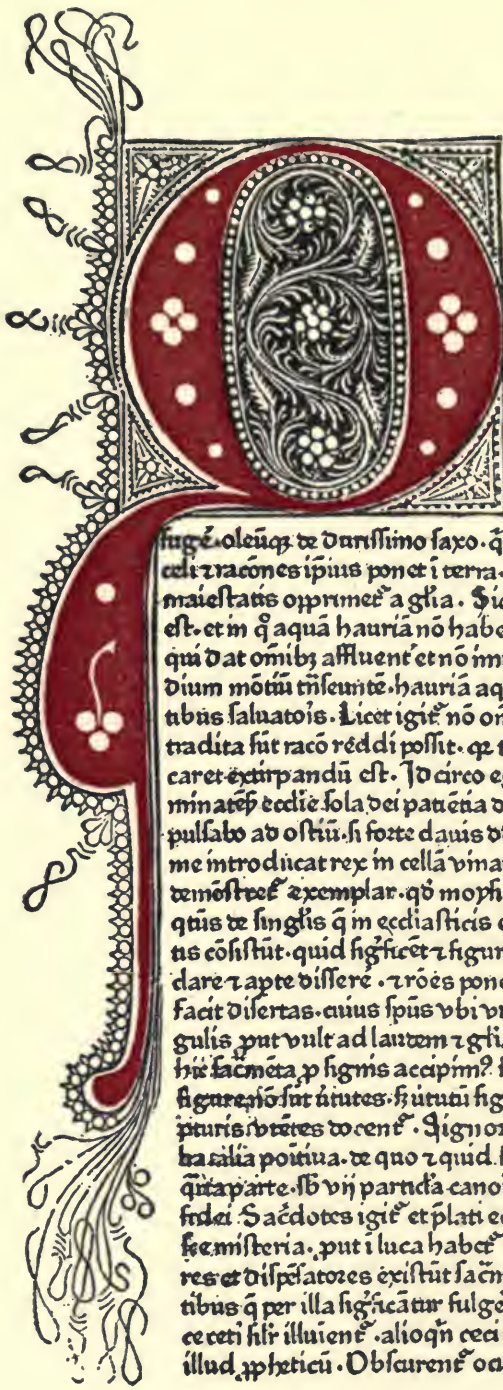 Q
fugē·oleūqꝫ de durissimo saxo·q̄
celi ⁊ racōnes ip̄ius ponet ī terra·
maiestatis opprimet᷑ a gl̄ia. Sic
est·et in q̄ aquā hauriā nō habe
qui dat om̄ibꝫ affluent᷑ et nō im
dium mōtiū tn̄seuntē·hauriā aq
tibus saluato͛is. Licet igit᷑ nō om̄
tradita sūt racō reddi possit·qꝛ t
caret·extirpandū est. Idcirco eg
eccl̄ie sola dei patiētia d
pulsabo ad ostiū·si forte clauis d
me introducat rex in cellā vina
demōstret᷑ exemplar·qd̄ moysi
qͥtus de singl̄is q̄ in eccl̄iasticis
tis cōsistūt·quid sig̓ficēt ⁊ figur
clare ⁊ apte disserē·⁊ rōes pone
facit disertas·cuius sp̄us vbi v
gulis ꝓut vult ad laudem ⁊ gl̄i
hic sac̄mēta ꝓ signis accipimꝰ
figure nō sūt v̓tutes·sꝫ v̓tutū sig
pturis vtētes docent᷑. Signor
talia positiua·de quo ⁊ quid
q̄nta parte·sb̄ vij particl̄a cano
fidei. Sac̓dotes igit᷑ et p̄lati ec
fee misteria·ꝓut ī luca habet᷑
res et dispēsatores existūt sac̄m
tibus q̄ per illa sig̓ficātur fulge
ce ceti filr̄ illuient᷑·alioqn̄ ceci
illud ꝓpheticū·Obscurent᷑ ocu